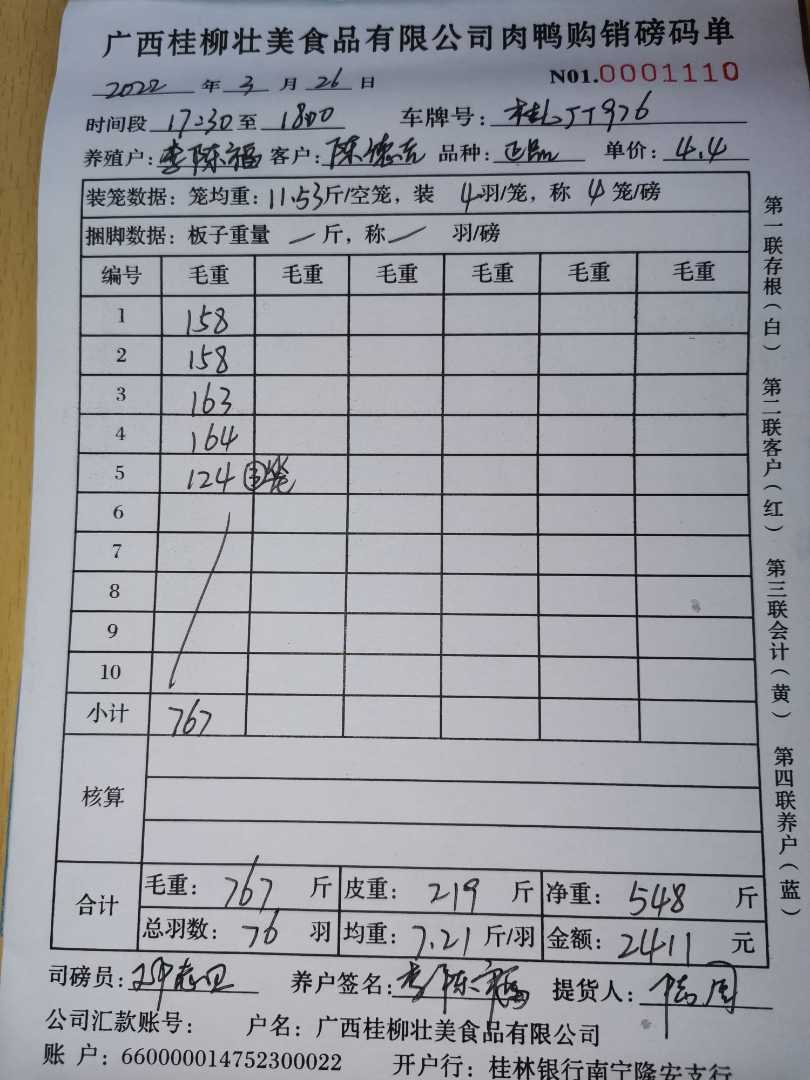 广西桂柳壮美食品有限公司肉鸭购销磅码单
2022 年 3 月 26 日 N01.0001110
时间段 17:30 至 18:00 车牌号: 桂 JT976
养殖户: 李陈福 客户: 陈德 品种: 正品 单价: 4.4
装笼数据: 笼均重: 11.53 斤/空笼, 装 4 羽/笼, 称 4 笼/磅
捆脚数据: 板子重量 — 斤, 称 — 羽/磅
编号 毛重 毛重 毛重 毛重 毛重 毛重
1 158
2 158
3 163
4 164
5 124 ③笼
6
7
8
9
10
小计 767
核算
合计 毛重: 767 斤 皮重: 219 斤 净重: 548 斤
总羽数: 76 羽 均重: 7.21 斤/羽 金额: 2411 元
司磅员: 养户签名: 李陈福 提货人:
公司汇款账号: 户名: 广西桂柳壮美食品有限公司
账 户: 660000014752300022 开户行: 桂林银行南宁隆安支行
第一联存根(白) 第二联客户(红) 第三联会计(黄) 第四联养户(蓝)